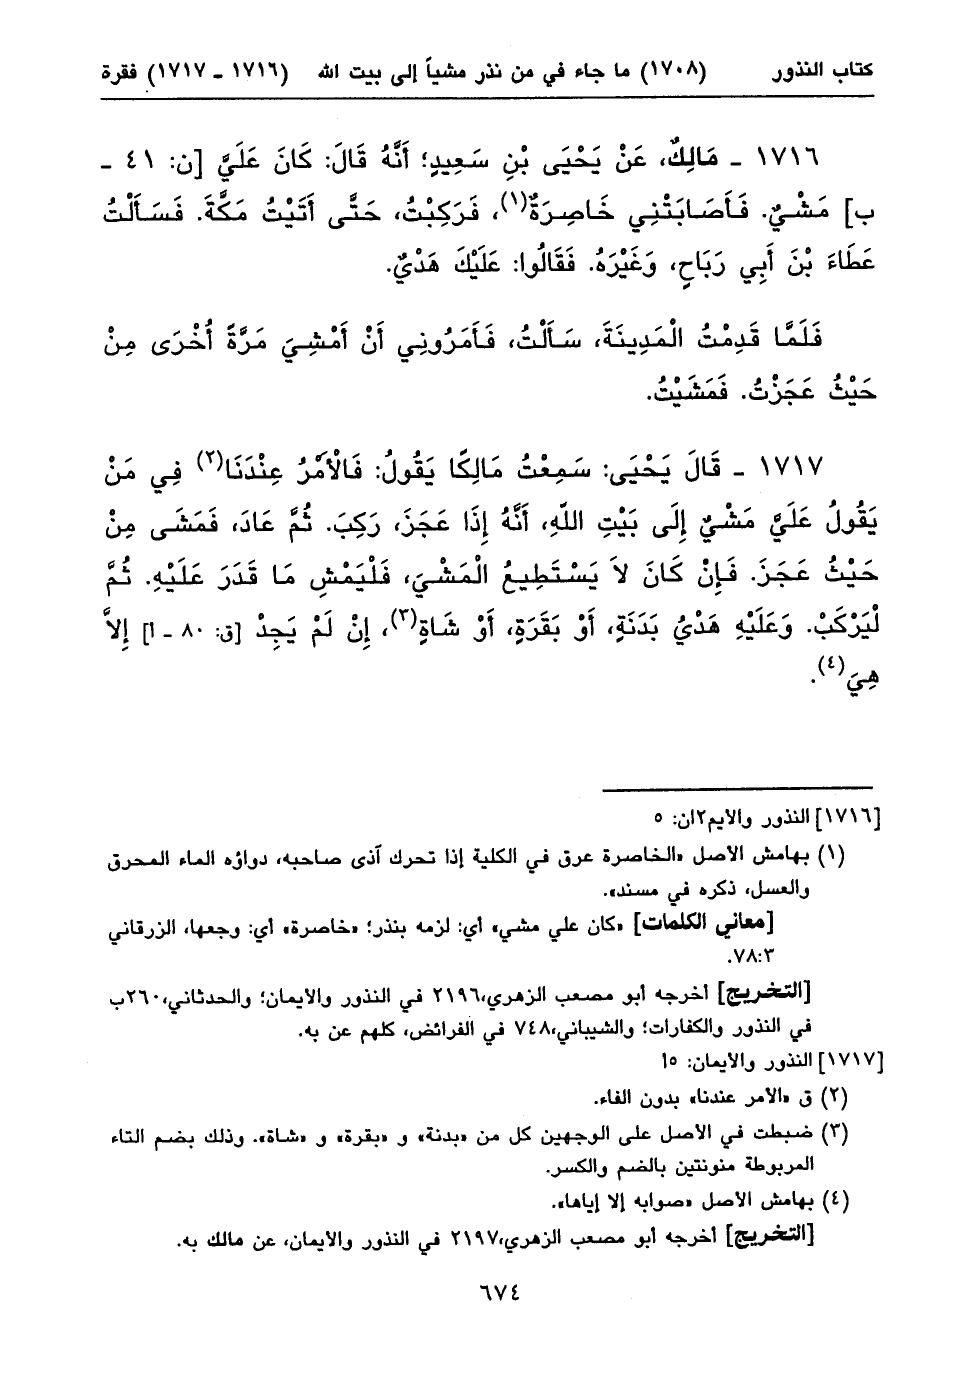 كتاب النذور (١٧٠٨) ما جاء في من نذر مشياً إلى بيت الله (١٧١٦ - ١٧١٧) فقرة
١٧١٦ - مَالِكٌ، عَنْ يَحْيَى بْنِ سَعِيدٍ؛ أَنَّهُ قَالَ: كَانَ عَلَيَّ [ن: ٤١ -
ب] مَشْيٌ. فَأَصَابَتْنِي خَاصِرَةٌ(١)، فَرَكِبْتُ، حَتَّى أَتَيْتُ مَكَّةَ. فَسَأَلْتُ
عَطَاءَ بْنَ أَبِي رَبَاحٍ، وَغَيْرَهُ. فَقَالُوا: عَلَيْكَ هَدْيٌ.
فَلَمَّا قَدِمْتُ الْمَدِينَةَ، سَأَلْتُ، فَأَمَرُونِي أَنْ أَمْشِيَ مَرَّةً أُخْرَى مِنْ
حَيْثُ عَجَزْتُ. فَمَشَيْتُ.
١٧١٧ - قَالَ يَحْيَى: سَمِعْتُ مَالِكًا يَقُولُ: فَالْأَمْرُ عِنْدَنَا(٢) فِي مَنْ
يَقُولُ عَلَيَّ مَشْيٌ إِلَى بَيْتِ اللهِ، أَنَّهُ إِذَا عَجَزَ، رَكِبَ. ثُمَّ عَادَ، فَمَشَى مِنْ
حَيْثُ عَجَزَ. فَإِنْ كَانَ لاَ يَسْتَطِيعُ الْمَشْيَ، فَلْيَمْشِ مَا قَدَرَ عَلَيْهِ. ثُمَّ
لْيَرْكَبْ. وَعَلَيْهِ هَدْيُ بَدَنَةٍ، أَوْ بَقَرَةٍ، أَوْ شَاةٍ(٣)، إِنْ لَمْ يَجِدْ [ق: ٨٠ - أ] إِلاَّ
هِيَ(٤).
[١٧١٦] النذور والايم٢ان: ٥
(١) بهامش الأصل «الخاصرة عرق في الكلية إذا تحرك آذى صاحبه، دواؤه الماء المحرق
والعسل، ذكره في مسند».
[معاني الكلمات] «كان علي مشي» أي: لزمه بنذر؛ «خاصرة» أي: وجعها، الزرقاني
٧٨:٣.
[التخريج] أخرجه أبو مصعب الزهري،٢١٩٦ في النذور والايمان؛ والحدثاني،٢٦٠ب
في النذور والكفارات؛ والشيباني،٧٤٨ في الفرائض، كلهم عن به.
[١٧١٧] النذور والايمان: ٥أ
(٢) ق «الامر عندنا» بدون الفاء.
(٣) ضبطت في الأصل على الوجهين كل من «بدنة» و «بقرة» و «شاة». وذلك بضم التاء
المربوطة منونتين بالضم والكسر.
(٤) بهامش الأصل «صوابه إلا إياها».
[التخريج] أخرجه أبو مصعب الزهري،٢١٩٧ في النذور والايمان، عن مالك به.
٦٧٤